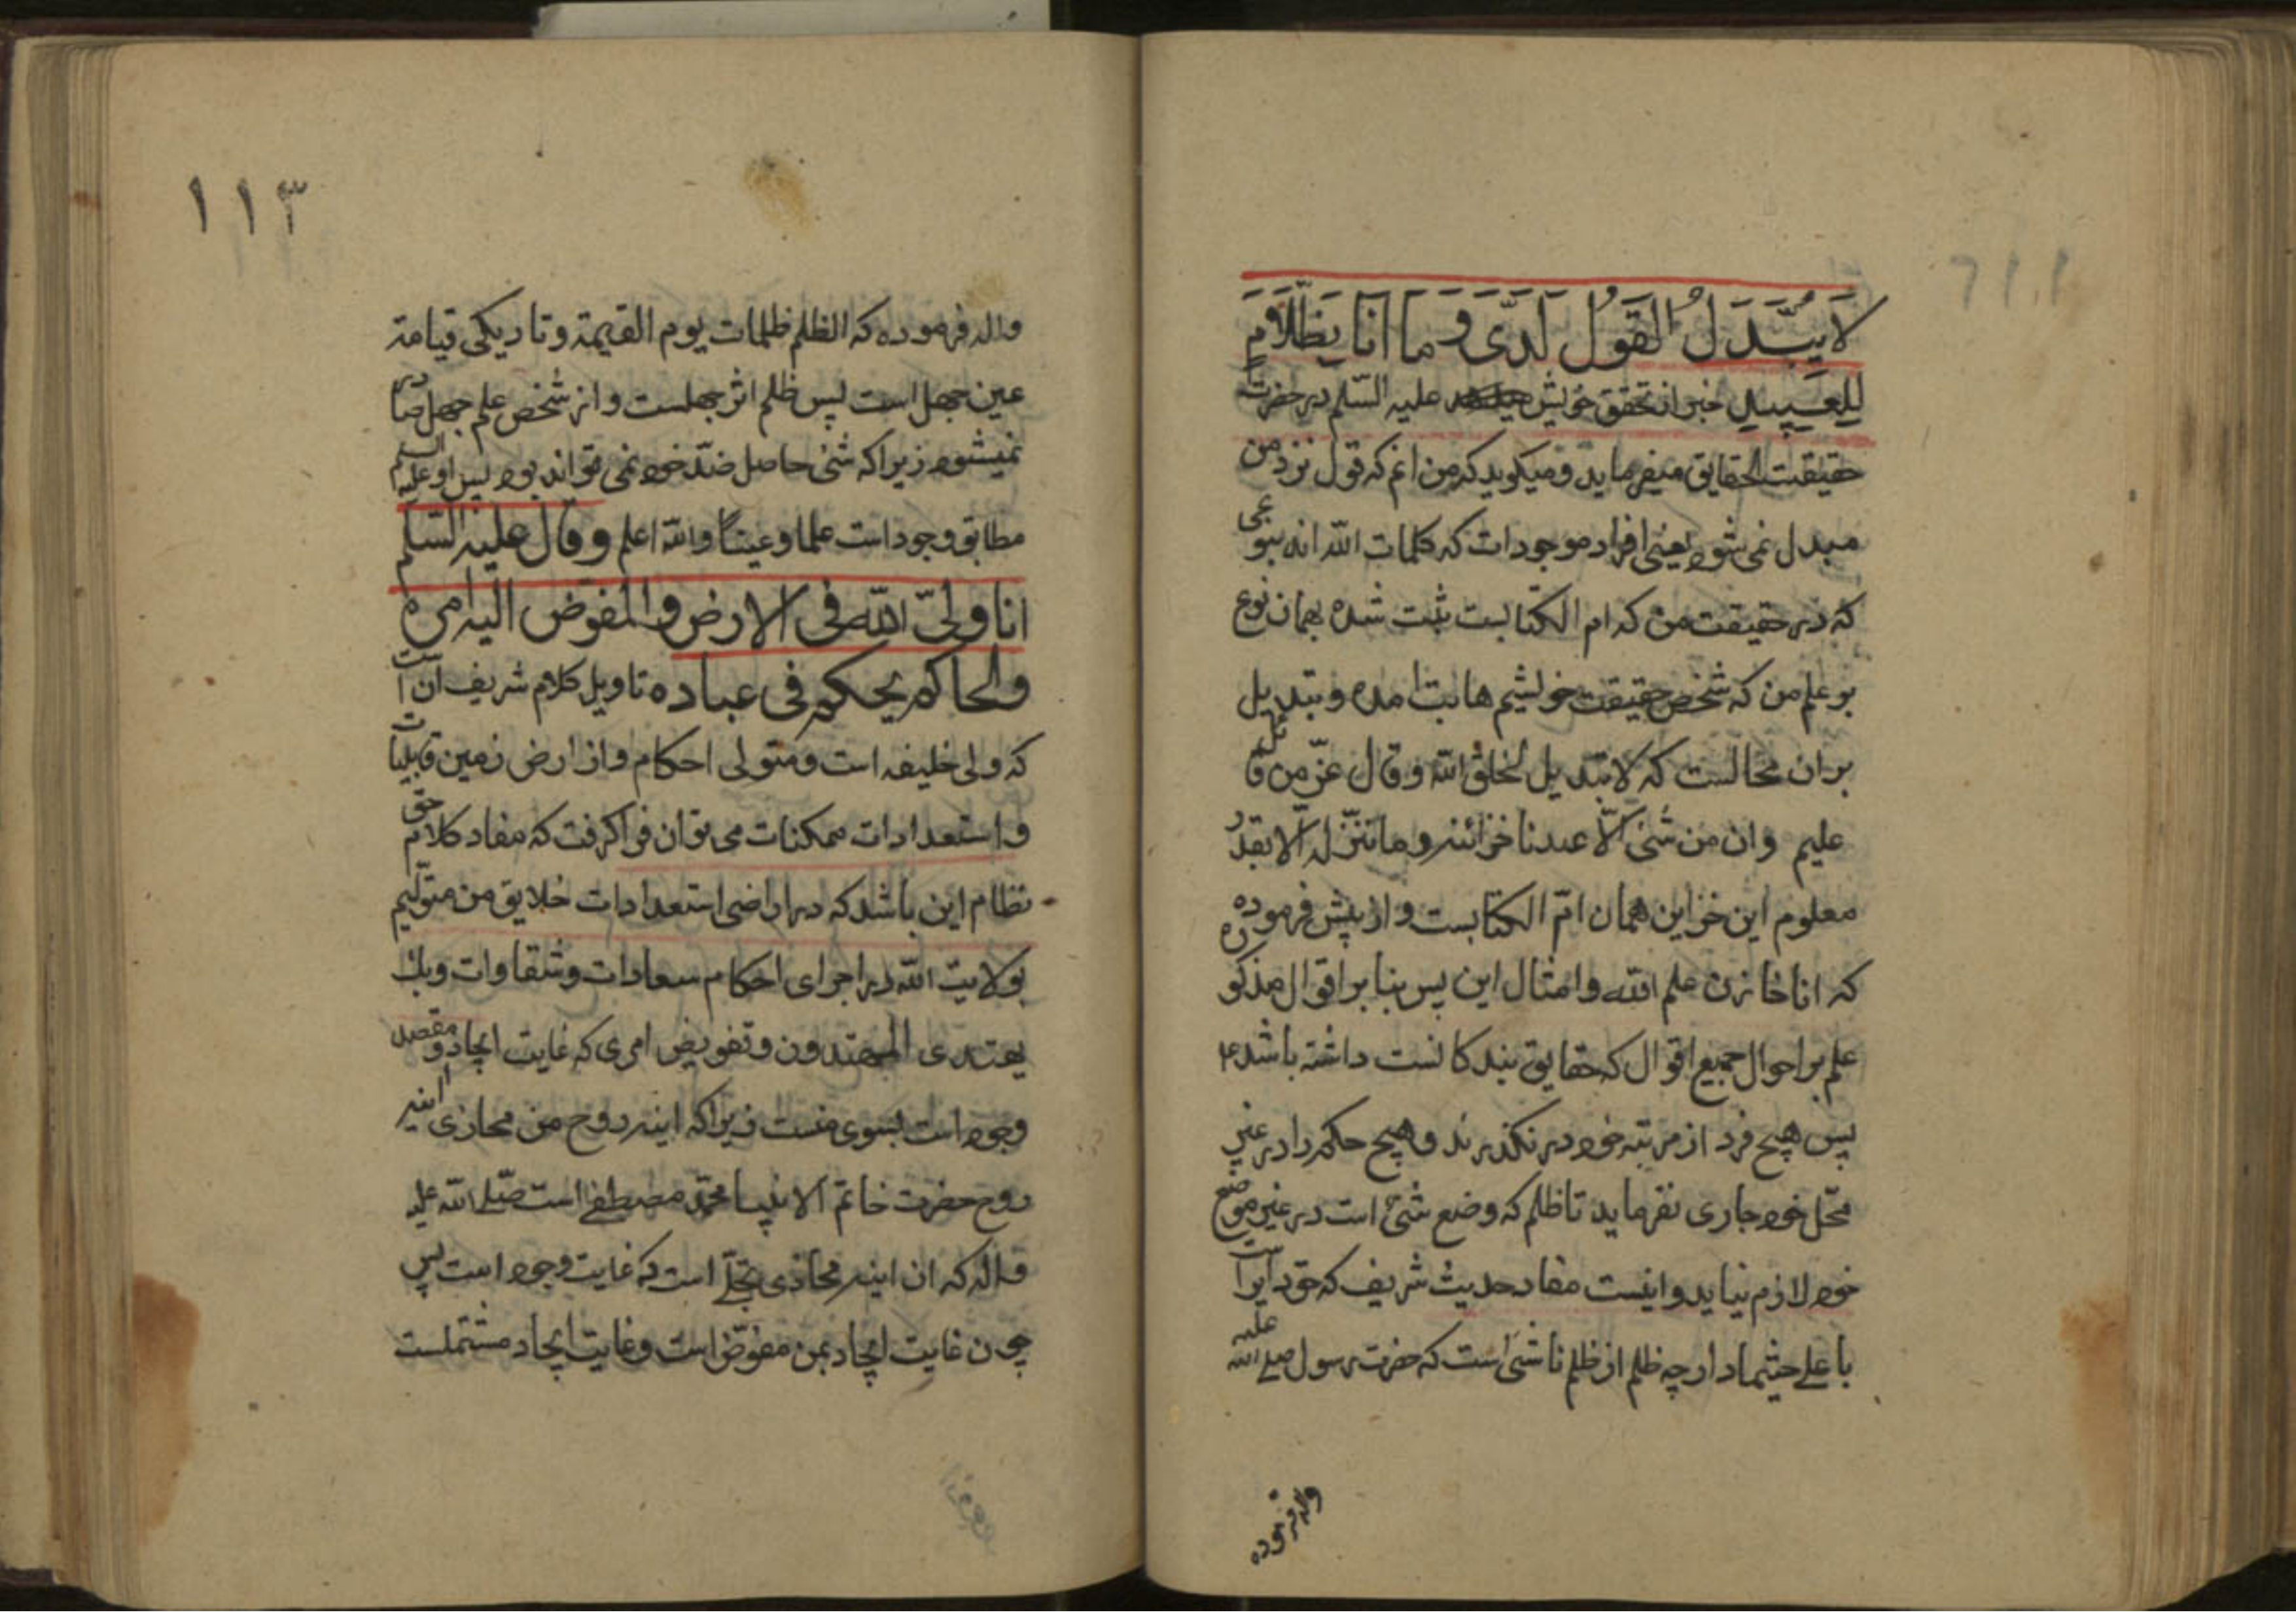 لَا يُبَدَّلُ الْقَوْلُ لَدَىَّ وَمَا اَنَا بِظَلَّامٍ
لِلعَبِيدِ خبر از تحقق خویش علیه السّلم در حضرت
حقیقت الحقایق میفرماید و میکوید که من انم که قول نزد من
مبدل نمی شود یعنی افراد موجودات که کلمات الله اند بنوعی
که در حقیقت من که ام الکتابست ثبت شده بهمان نوع
بر علم من که شخص حقیقت خویشم هابت امده و تبدیل
بران محالست که لا تبدیل لخلق الله و قال عزّ من قائل
علیم وان من شئ الّا عندنا خزائنه وما ننزّله الّا بقدر
معلوم این خزاین همان امّ الکتابست و از پیش فرموده
که انا خازن علم الله و امثال این پس بنا بر اقوال مذکوره
علم بر احوال جمیع اقوال که حقایق بندکانست داشته باشد
پس هیچ فرد از مرتبه خود در نکذرند و هیچ حکم را در غیر
محّل خود جاری نفرماید تا ظلم که وضع شئ است در غیر موضع
خود لازم نیاید و اینست مفاد حدیث شریف که حق دایرا ست
با علے حیثما دار چه ظلم از ظلم ناشی است که حضرت رسول صلے الله علیه
واله فرموده
١١٣
واله فرموده که الظلم ظلمات یوم القیمة و تاریکی قیامة
عین جهل است پس ظلم اثر جهلست و از شخص علم جهل صادر
نمیشود زیرا که شئ حاصل ضدّ خود نمی تواند بود پس او علیه السلم
مطابق وجود است علما و عیناً والله اعلم وقال علیه السّلم
انا ولیّ الله فی الارض والمفوض الیه امره
والحاکم یحکم فی عباده تاویل کلام شریف ان است
که ولی خلیفه است و متولی احکام و از ارض زمین قابلیات
و استعدادات ممکنات می توان فرا کرفت که مفاد کلام حق
نظام این باشد که در اراضی استعدادات خلایق من متولّیم
بولایت الله در اجرای احکام سعادات و شقاوات وبك
یهتدی المهتدون و تفویض امری که غایت ایجاد و مقصد
وجود است بسوی منست زیرا که اینه روح من محاذی اینه
روح حضرت خاتم الانبیا محمّد مصطفے است صلّے الله علیه
واله که ان اینه محاذی تجلّے است که غایت وجود است پس
چون غایت ایجاد بمن مفوّض است و غایت ایجاد مشتملست